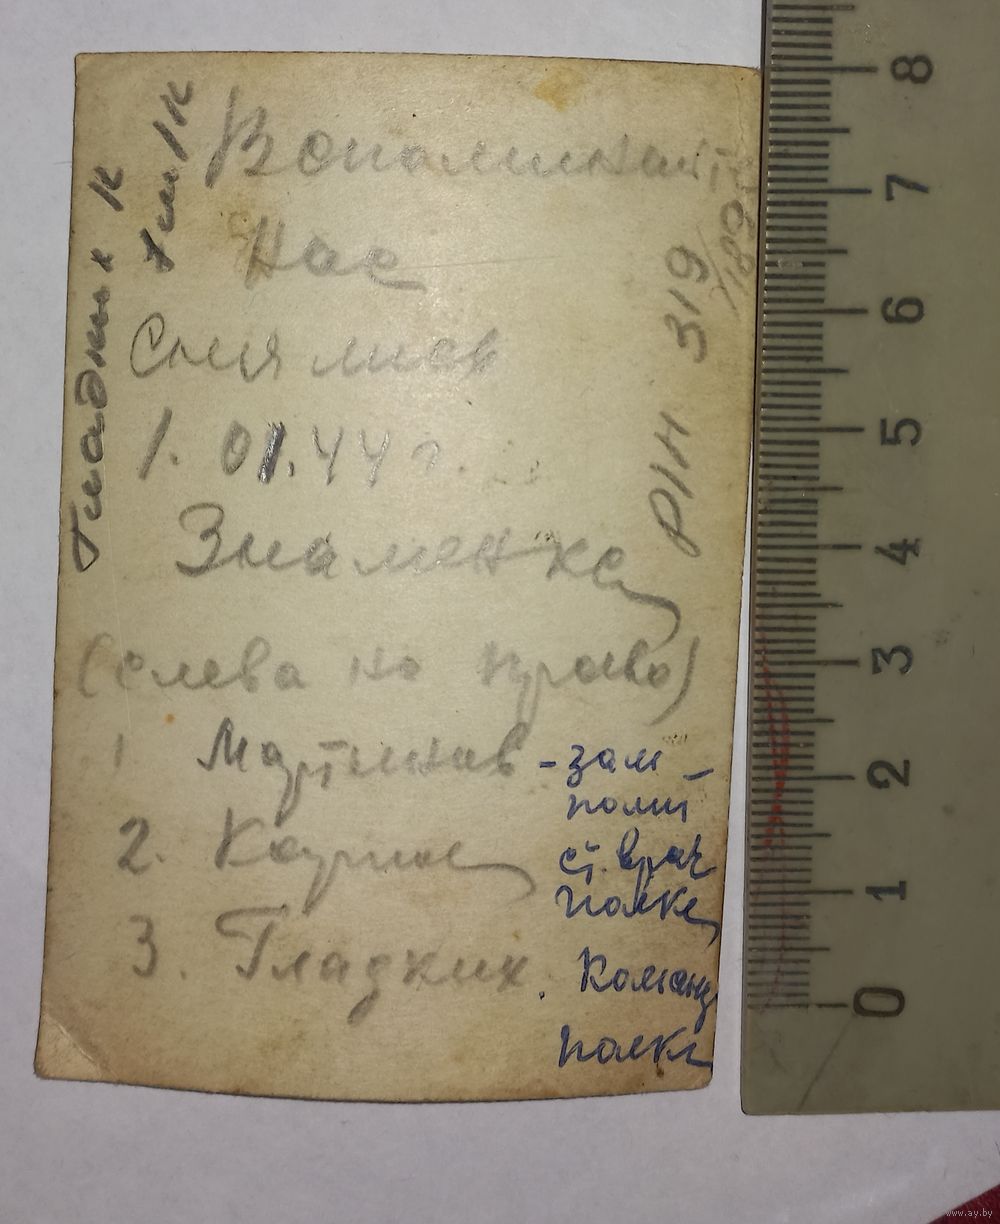 Вспоминайте
нас
Снялись
1.01.44 г.
Знаменка
(слева на право)
1 Мартинов - зам
полит
2. ст. врач
полка
3. Гладких. Команд
полка
Гладких К
РГН 319
/189
8
7
6
5
4
3
2
1
0
www.ay.by